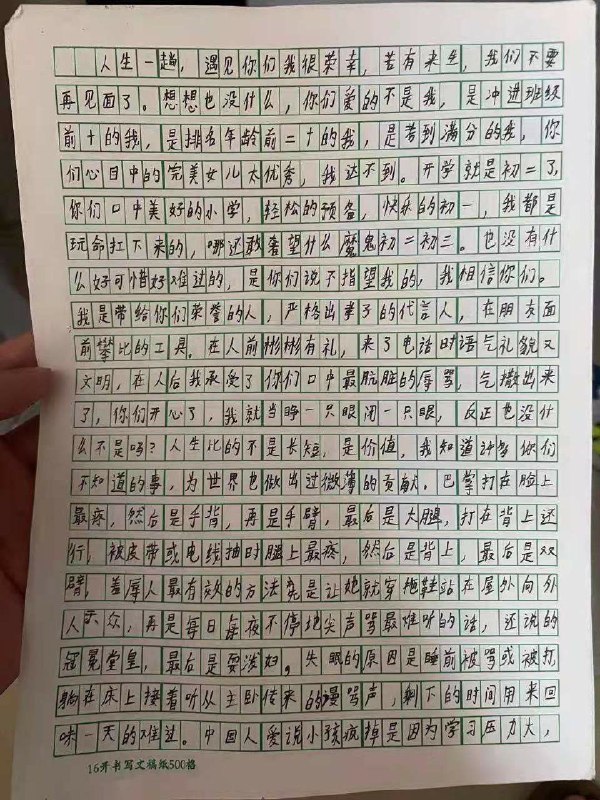 人生一趟，遇见你们我很荣幸，若有来生，我们不要
再见面了。想想也没什么，你们爱的不是我，是冲进班级
前十的我，是排名年龄前二十的我，是考到满分的我，你
们心目中的完美女儿太优秀，我达不到。开学就是初二了，
你们口中美好的小学，轻松的预备，快乐的初一，我都是
玩命扛下来的，哪还敢奢望什么魔鬼初二初三。也没有什
么好可惜好难过的，是你们说不指望我的，我相信你们。
我是带给你们荣誉的人，严格出孝子的代言人，在朋友面
前攀比的工具。在人前彬彬有礼，来了电话时语气礼貌又
文明，在人后我承受了你们口中最肮脏的辱骂，气撒出来
了，你们开心了，我就当睁一只眼闭一只眼，反正也没什
么不是吗？人生比的不是长短，是价值，我知道许多你们
不知道的事，为世界也做出过微薄的贡献。巴掌打在脸上
最疼，然后是手背，再是手臂，最后是大腿，打在背上还
行，被皮带或电线抽时腿上最疼，然后是背上，最后是双
臂，羞辱人最有效的方法竟是让她就穿拖鞋站在屋外向外
人示众，再是每日每夜不停地尖声骂最难听的话，还说的
冠冕堂皇，最后是耍泼妇。失眠的原因是睡前被骂或被打，
躺在床上接着听从主卧传来的谩骂声，剩下的时间用来回
味一天的难过。中国人爱说小孩疯掉是因为学习压力大，
16开书写文稿纸500格